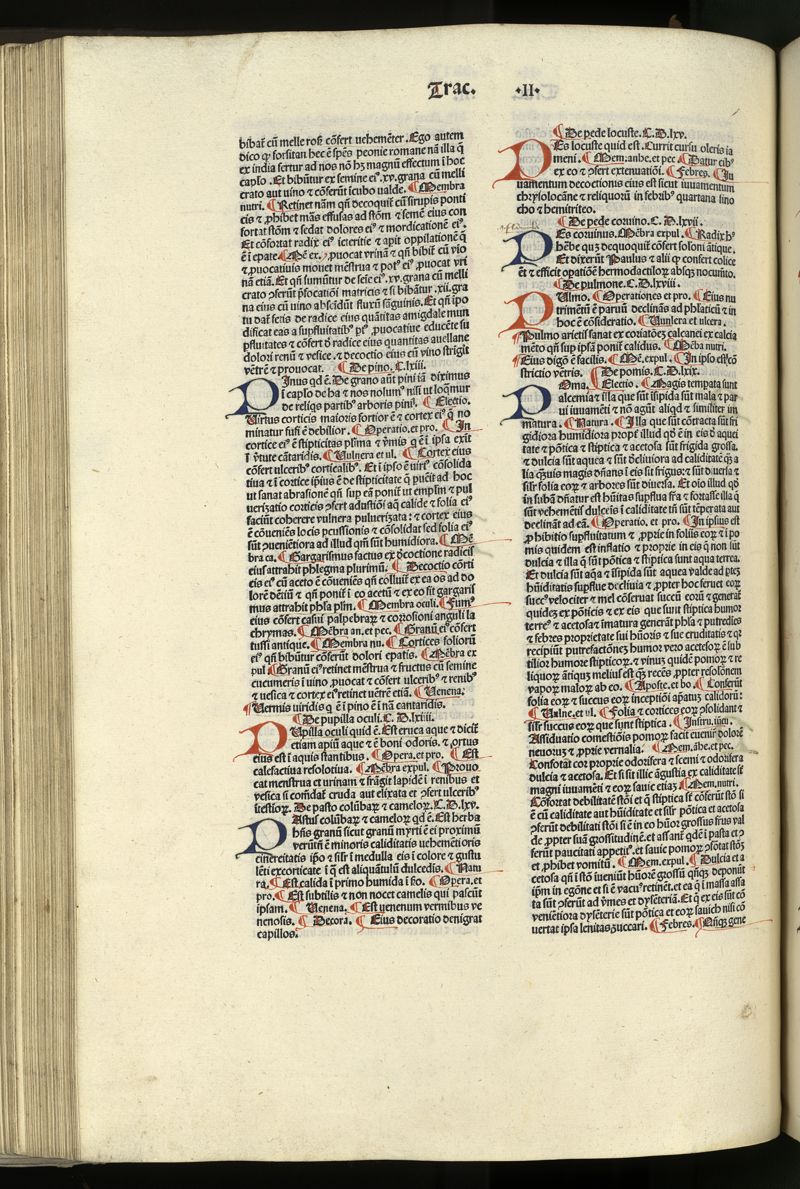 Trac. .II.
bibat᷑ cū melle roſ. cōfert uehemēter. Ego autem
dico ꝙ forſitan hec ē ſpēs peonie romane nā illa q̄
ex india fertur ad nos nō hꝫ magnū effectum ī hoc
caplo. Et bibūtur ex ſemine ei⁹.xv.grana cū melli
crato aut uino & cōferūt īcubo ualde. ¶Membra
nutri. ¶Retinet nām qn̄ decoquit᷑ cū ſirupis ponti
cis & ꝓhibet mās effuſas ad ſtōm & ſemē eius con
fortat ſtōm & ſedat dolores ei⁹ & mordicationē ei⁹.
Et cōfortat radix ei⁹ icteritie & apit oppilationē q̄
ē ī epate ¶Mē ex. ꝓuocat vrinā & qn̄ bibit᷑ cū vīo
& ꝓuocatiuis mouet mēſtrua & pot⁹ ei⁹ ꝓuocat vri
nā etiā. Et qn̄ ſumūtur de ſeīe ei⁹.xv.grana cū melli
crato ꝯferūt p̄focatiōi matricis & ſi bibāt᷑.xii.gra
na eius cū uino abſcidūt fluxū ſāguinis. Et qn̄ ipō
tu dat᷑ fetis de radice eius quātitas amigdale mun
dificat eas a ſupfluitatib⁹
pſluitates & cōfert ð radice eius quantitas auellane
dolori renū & veſice. & decoctio eius cū vino ſtrīgit
vētrē & prouocat. ¶De pino.C.lxiii.
PInus qd ē. De grano aūt pini iā diximus
ī caplo de ha & nos nolum⁹ niſi ut loq̄mur
de reliq̄s partib⁹ arboris pini. ¶Electio.
Virtus corticis maioris fortior ē & cortex ei⁹ q̄ no
minatur fufi ē debilior. ¶Operatio.et pro. ¶In
cortice ei⁹ ē ſtipticitas pl̄ima & v̄mis q̄ ē ī ipſa exit
ī v̄tute cātaridis. ¶Vulnera et ul. ¶Cortex eius
cōfert ulcerib⁹ corticalib⁹. Et ī ipſo ē uirt⁹ cōſolida
tiua & ī cortice ip̄ius ē de ſtipticitate q̄ puēit ad hoc
ut ſanat abraſionē qn̄ ſup eā ponit᷑ ut emplm̄ & pul
uerizatio corticis ꝯfert aduſtiōi aq̄ calide & folia ei⁹
faciūt coherere vulnera puluerizata: & cortex eius
ē cōueniēs locis pcuſſionis & cōſolidat ſed folia ei⁹
ſūt ꝯueniētiora ad illud qn̄ ſūt humidiora. ¶Mē
bra ca. ¶Gargariſmus factus ex ðcoctione radicis
eius attrahit phlegma plurimū. ¶Decoctio corti
cis ei⁹ cū aceto ē cōueniēs qn̄ colluit᷑ ex ea os ad do
lorē dētiū & qn̄ ponit᷑ ī eo acetū & ex eo fit gargariſ
mus attrahit phl̄a pl̄m. ¶Membra oculi. ¶Fum⁹
eius cōfert caſui palpebraꝝ & corroſioni anguli la
chrymas. ¶Mēbra an.et pec. ¶Granū ei⁹ cōfert
tuſſi antique. ¶Membra nu. ¶Cortices foliorū
ei⁹ qn̄ bibūtur cōferūt dolori epatis. ¶Mēbra ex
pul ¶Granū ei⁹ retinet mēſtrua & fructus cū ſemine
cucumeris ī uino ꝓuocat & cōfert ulcerib⁹ & renib⁹
& ueſica & cortex ei⁹ retinet uētrē etiā. ¶Venena.
¶Vermis uiridis q̄ ē ī pino ē ī nā cantaridis.
¶De pupilla oculi.C.D.lxiiii.
PUpilla oculi quid ē. Eſt eruca aque & dicit᷑
etiam apiū aque & ē boni odoris. & ꝓrtus
eius eſt ī aquis ſtantibus. ¶Opera.et pro. ¶Eſt
calefactiua reſolutiua. ¶Mēbra expul. ¶Prouo
cat menſtrua et urinam & frāgit lapidē ī renibus et
veſica ſi comedat᷑ cruda aut elixata et ꝯfert ulcerib⁹
īteſtioꝝ. De paſto colūbaꝝ & cameloꝝ.C.D.lxv.
PAſtus colūbaꝝ & cameloꝝ qd ē. Eſt herba
hn̄s granū ſicut granū myrti ē ei proximū
verūtn̄ ē minoris caliditatis uehemētioris
cinereitatis ip̄o & ſil̄r ī medulla eis ī colore & guſtu
lēti excorticate ī q̄ eſt aliquātulū dulcedis. ¶Natu
ra. ¶Eſt calida ī primo humida ī ſcō. ¶Opera.et
pro. ¶Eſt ſubtilis & non nocet camelis qui paſcūt
ipſam. ¶Venena. ¶Eſt uenenum vermibus ve
nenoſis. ¶Decora. ¶Eius decoratio denigrat
capillos.
¶De pede locuſte.C.D.lxv.
PEs locuſte quid eſt. Currit curſu oleris ia
meni. ¶Mem.anhe.et pec ¶Datur cib⁹
ex eo & ꝯfert extenuatiōi. ¶Febres. ¶Iu
uamentum decoctionis eius eſt ſicut iuuamentum
chryſolocāne & reliquorū in febrib⁹ quartana ſino
cho & hemitriteo.
¶De pede coruino.C.D.lxvii.
PEs coruinus. Mēbra expul. ¶Radix h⁹
hēbe quꝫ dequoquit᷑ cōfert ſoloni ātique.
Et dixerūt Paulus & alii ꝙ confert colice
et & efficit opatiōē hermodactiloꝝ abſqꝫ nocumēto.
¶De pulmone.C.D.lxviii.
PUlmo. ¶Operationes et pro. ¶Eius nu
trimētū ē paruū declinās ad phlaticū & in
hoc ē cōſideratio. ¶Vulnera et ulcera.
¶Pulmo arietis ſanat ex coriatōeꝫ calcanei ex calcia
mēto qn̄ ſup ipſā ponit᷑ calidus. ¶Mēba nutri.
¶Eius digō ē facilis. ¶Mē.expul. ¶In ipſo eſt cō
ſtrictio vētris. ¶De pomis.C.D.lxix.
POma. ¶Electio. ¶Magis tempata ſunt
alcemia & illa que ſūt īſipida ſūt mala & par
ui iuuamēti & nō agūt aliqd & ſimiliter im
matura. ¶Natura. ¶Illa que ſūt cōtracta ſūt fri
gidiora humidiora propt᷑ illud qd ē in eis ð aquei
tate & pōtica & ſtiptica & acetoſa ſūt frigida groſſa.
& dulcia ſūt aquea & ſūt ðcliuiora ad caliditatē qꝫ a
lia qꝫuis magis dn̄ans ī eis ſit frigus: & ſūt diuerſa &
ſil̄r folia eoꝝ & arbores ſūt diuerſa. Et oīo illud qd
in ſubā dn̄atur eſt hūitas ſupflua fra & fortaſſe illa q̄
ſūt vehemētis dulcēs ī caliditate tn̄ ſūt tēperata aut
declināt ad eā. ¶Operatio. et. pro. ¶In ipſius eſt
ꝓhibitio ſupfluitatum & ꝓprie in foliis eoꝝ & ī po
mis quidem eſt inflatio & proprie in eis q̄ non ſūt
dulcia & illa q̄ ſūt pōtica & ſtiptica ſunt aqua terrea.
Et dulcia ſūt aq̄a & īſipida ſūt aquea ualde ad pteꝫ
hūiditatis ſupflue decliuia & ꝓpter hoc feruet eoꝝ
ſucc⁹ velociter & mel cōſeruat ſuccū eorū & generat᷑
quideꝫ ex pōticis & ex eis que ſunt ſtiptica humor
terre⁹ & acetoſa & īmatura generāt phl̄a & putredīes
& febres proprietate ſui hūoris & ſue cruditatis & qꝛ
recipiūt putrefactōneꝫ humor vero acetoſoꝝ ē ſub
tilior humore ſtipticoꝝ. & vinuꝫ quidē pomoꝝ & re
liquoꝝ ātiquꝫ melius eſt qꝫ recēs ꝓpter reſolōnem
vapoꝝ maloꝝ ab eo. ¶Apoſte.et bo. ¶Conferūt
folia eoꝝ & ſuccus eoꝝ inceptiōi apatuꝫ calidorū:
¶Vulne.et ul. ¶Folia & cortices eoꝝ ꝯſolidant &
ſil̄r ſuccus eoꝝ que ſunt ſtiptica. ¶Inſtru.iūcu.
Aſſiduatio comeſtiōis pomoꝝ facit euenir dolorē
neuoruꝫ & ꝓprie vernalia. ¶Mem.āhe.et pec.
Confortāt cor proprie odorifera & ſcemi & odorifera
dulcia & acetoſa. Et ſi ſit illic āguſtia ex caliditate ſt᷑
magni iuuamēti & eoꝝ ſauic etiaꝫ ¶Mem.nutri.
Cōfortat debilitatē ſtōi et q̄ ſtiptica ſt᷑ cōferūt ſtō ſi
ē cū caliditate aut hūiditate et ſil̄r pōtica et acetoſa
ꝯferūt debilitati ſtōi ſi ē in eo hūor groſſus frus val
de ꝓpter ſuā groſſitudinē. et aſſant᷑ qdē ī paſta et ꝯ
ferūt paucitati appetit⁹. et ſauic pomoꝝ ꝯfortat ſtōꝫ
et ꝓhibet vomitū. ¶Mem.expul. ¶Dulcia et a
cetoſa qn̄ ī ſtō īueniūt hūorē groſſū qn̄qꝫ deponūt
ip̄m in egōne et ſi ē vacu⁹ retinet. et ea q̄ ī maſſa aſſa
ta ſūt ꝯferūt ad v̄mes et dyſēteriā. Et q̄ ex eis ſūt cō
venietiora dyſēterie ſūt pōtica et eoꝝ ſauich niſi cō
uertat ipſa lenitas zuccari. ¶Febres. ¶Qn̄qꝫ gene